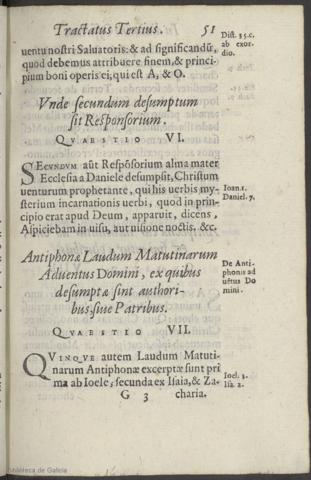 Tractatus Tertius. 51
uentu nostri Saluatoris: & ad significandū,
quod debemus attribuere finem, & princi-
pium boni operis ei, qui est A, & O.
Dist. 35. c.
ab exor-
dio.
Vnde secundum desumptum
sit Responsorium.
QVAESTIO VI.
SECVNDVM aūt Respōsorium alma mater
Ecclesia a Daniele desumpsit, Christum
venturum prophetante, qui his uerbis my-
sterium incarnationis uerbi, quod in prin-
cipio erat apud Deum, apparuit, dicens,
Aspiciebam in uisu, aut uisione noctis. &c.
Ioan. 1.
Daniel. 7.
Antiphonæ Laudum Matutinarum
Aduentus Domini, ex quibus
desumptæ sint authori-
bus, siue Patribus.
QVAESTIO VII.
De Anti-
phonis ad
uētus Do
mini.
QVINQVE autem Laudum Matuti-
narum Antiphonæ excerptæ sunt pri
ma ab Ioele, secunda ex Isaia, & Za-
Ioel. 3.
Isa. 2.
G 3 charia.
Biblioteca de Galicia